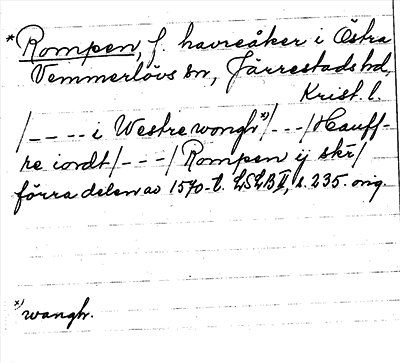 *Rompen, f. havreåker i Östra
Vemmerlövs sn, Järrestads hd,
Krist. l.
/---- i Westre wongh x)/---/Hauff-
re iordt/---/Rompen ij skr/
förra delen av 1570-t. LSLB II, s. 235. orig.
x) wangh.